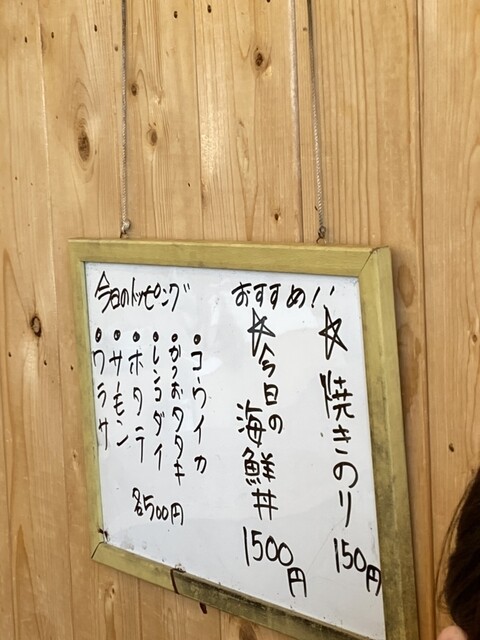 おすすめ!!
☆焼きのり 150円
☆今日の海鮮丼 1500円
今日のトッピング
・コウイカ
・かつおタタキ
・レンコダイ
・ホタテ
・サーモン
・ワラサ
各500円